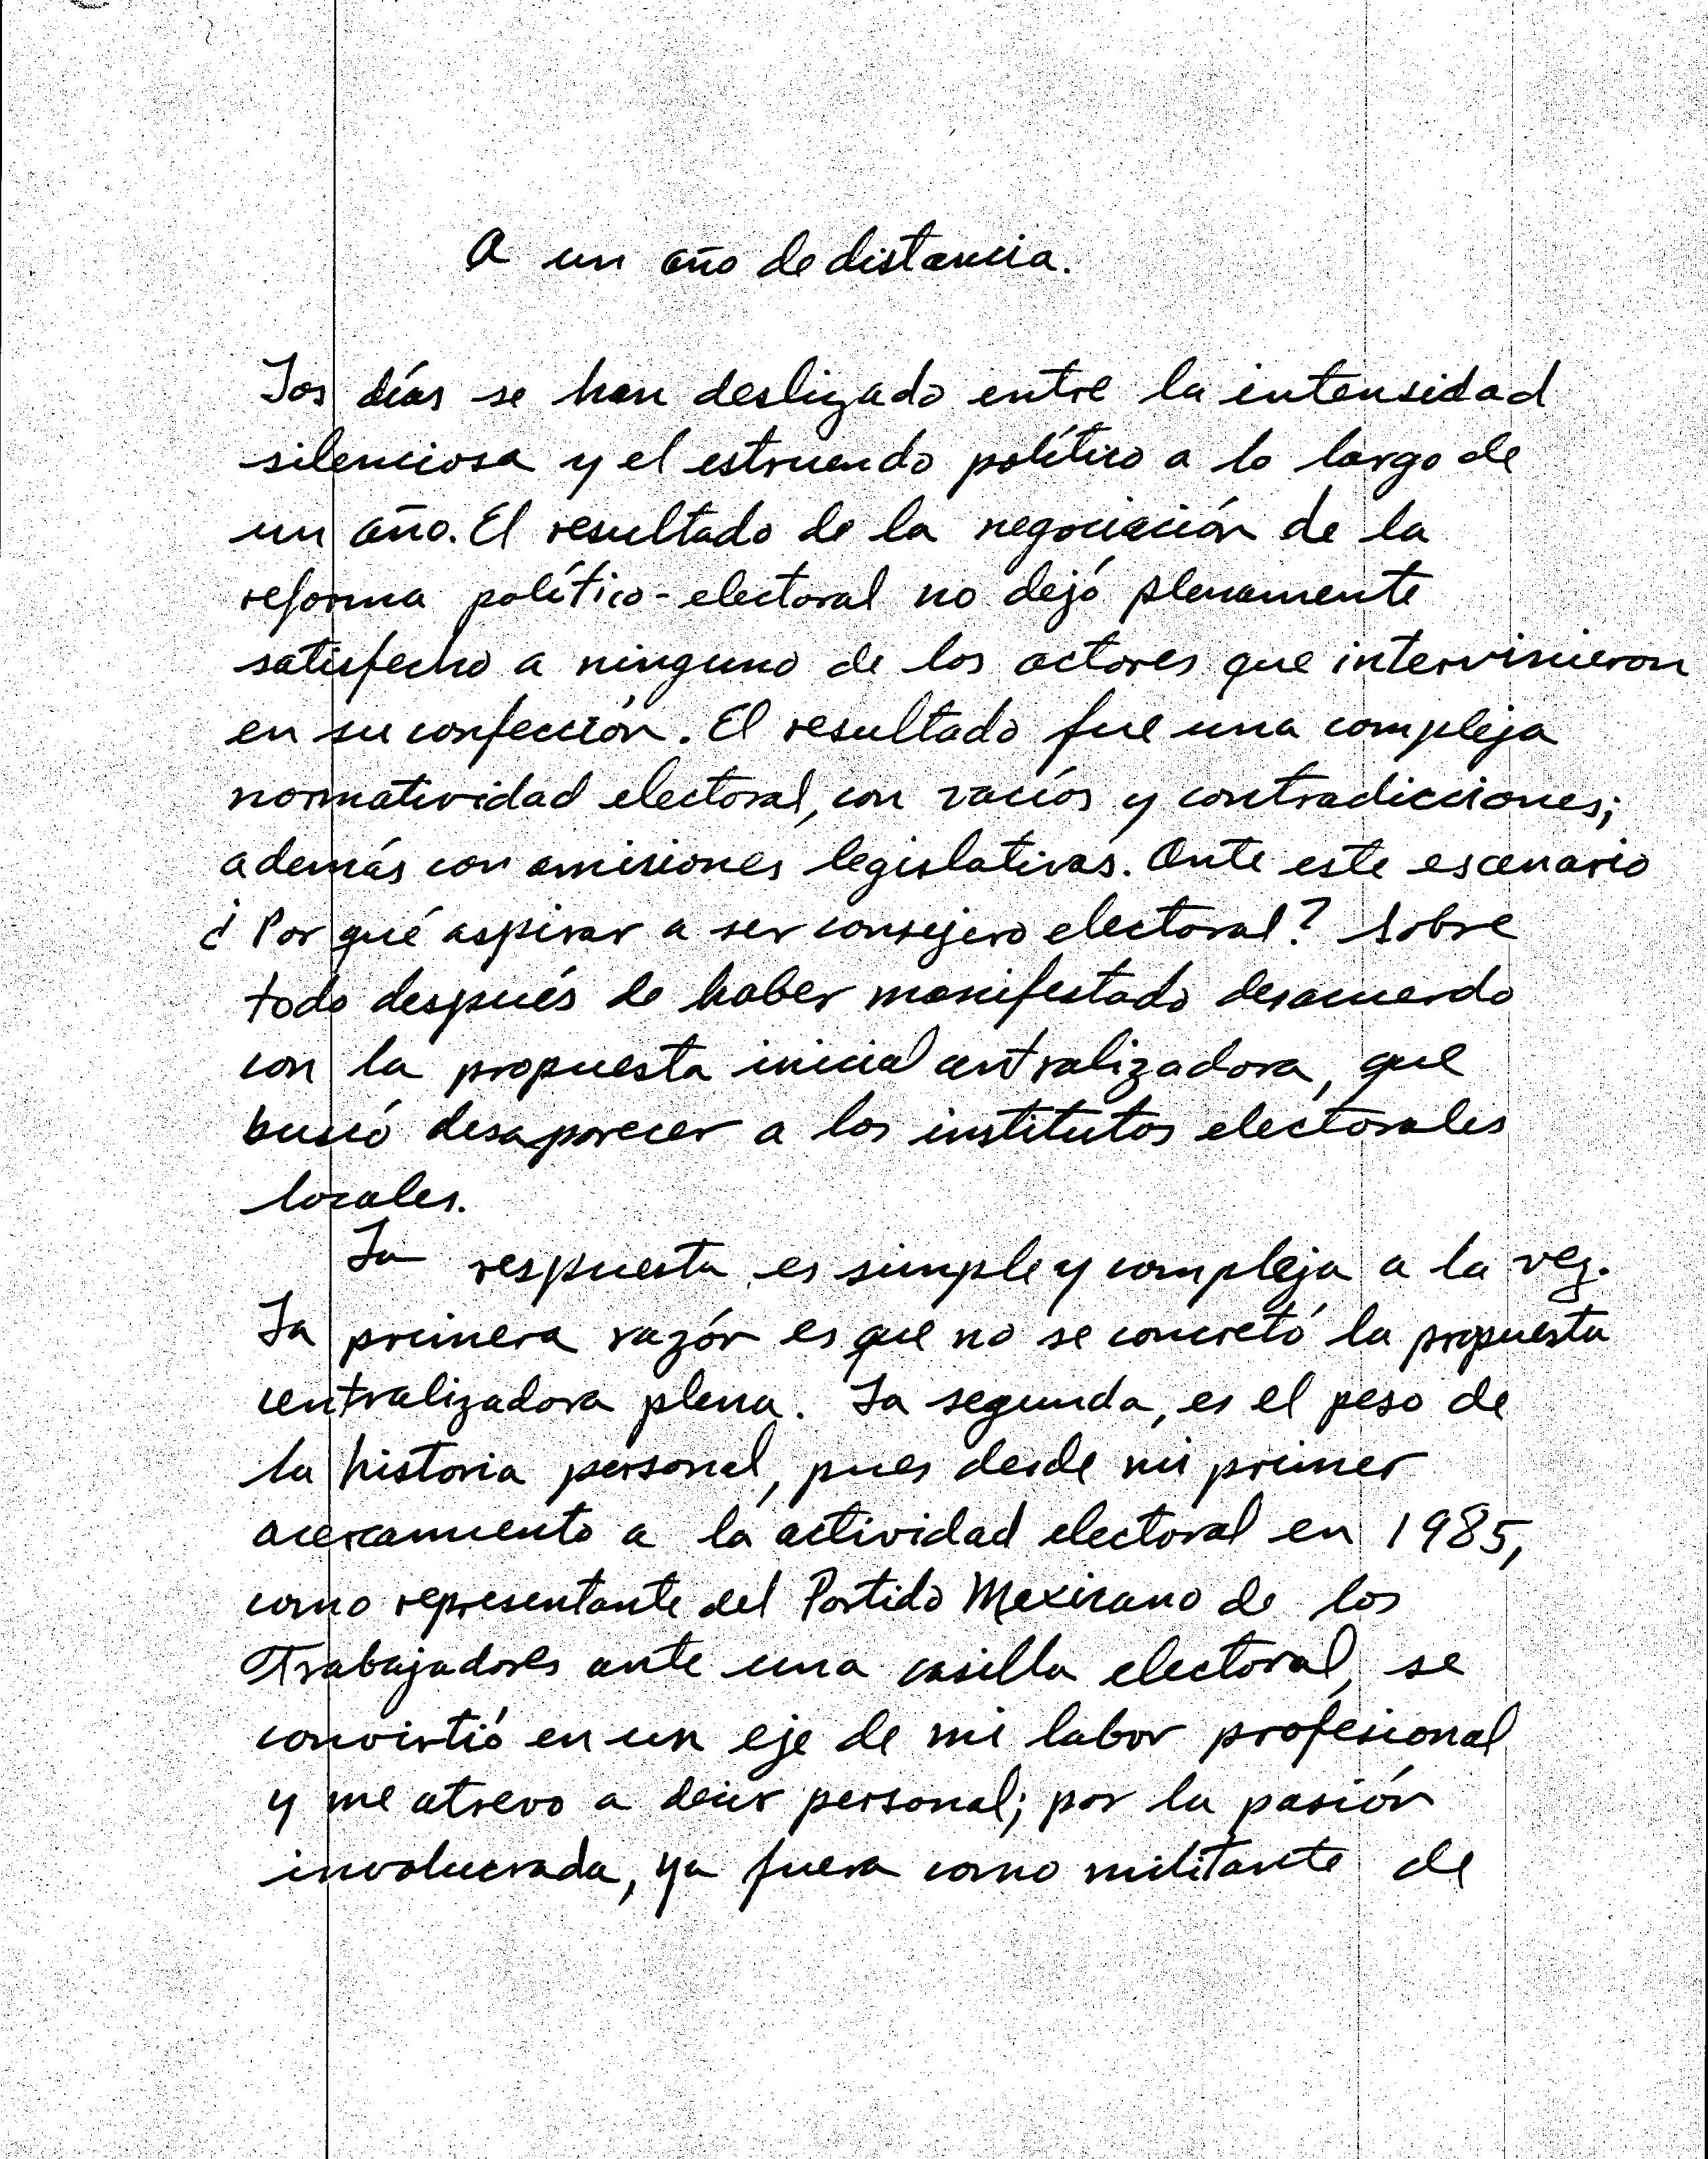 A un año de distancia.
Los días se han deslizado entre la intensidad
silenciosa y el estruendo político a lo largo de
un año. El resultado de la negociación de la
reforma político-electoral no dejó plenamente
satisfecho a ninguno de los actores que intervinieron
en su confección. El resultado fue una compleja
normatividad electoral, con vacíos y contradicciones;
además con omisiones legislativas. Ante este escenario
¿Por qué aspirar a ser consejero electoral? Sobre
todo después de haber manifestado desacuerdo
con la propuesta inicial centralizadora, que
buscó desaparecer a los institutos electorales
locales.
La respuesta es simple y compleja a la vez.
La primera razón es que no se concretó la propuesta
centralizadora plena. La segunda, es el peso de
la historia personal, pues desde mi primer
acercamiento a la actividad electoral en 1985,
como representante del Partido Mexicano de los
Trabajadores ante una casilla electoral, se
convirtió en un eje de mi labor profesional
y me atrevo a decir personal; por la pasión
involucrada, ya fuera como militante de